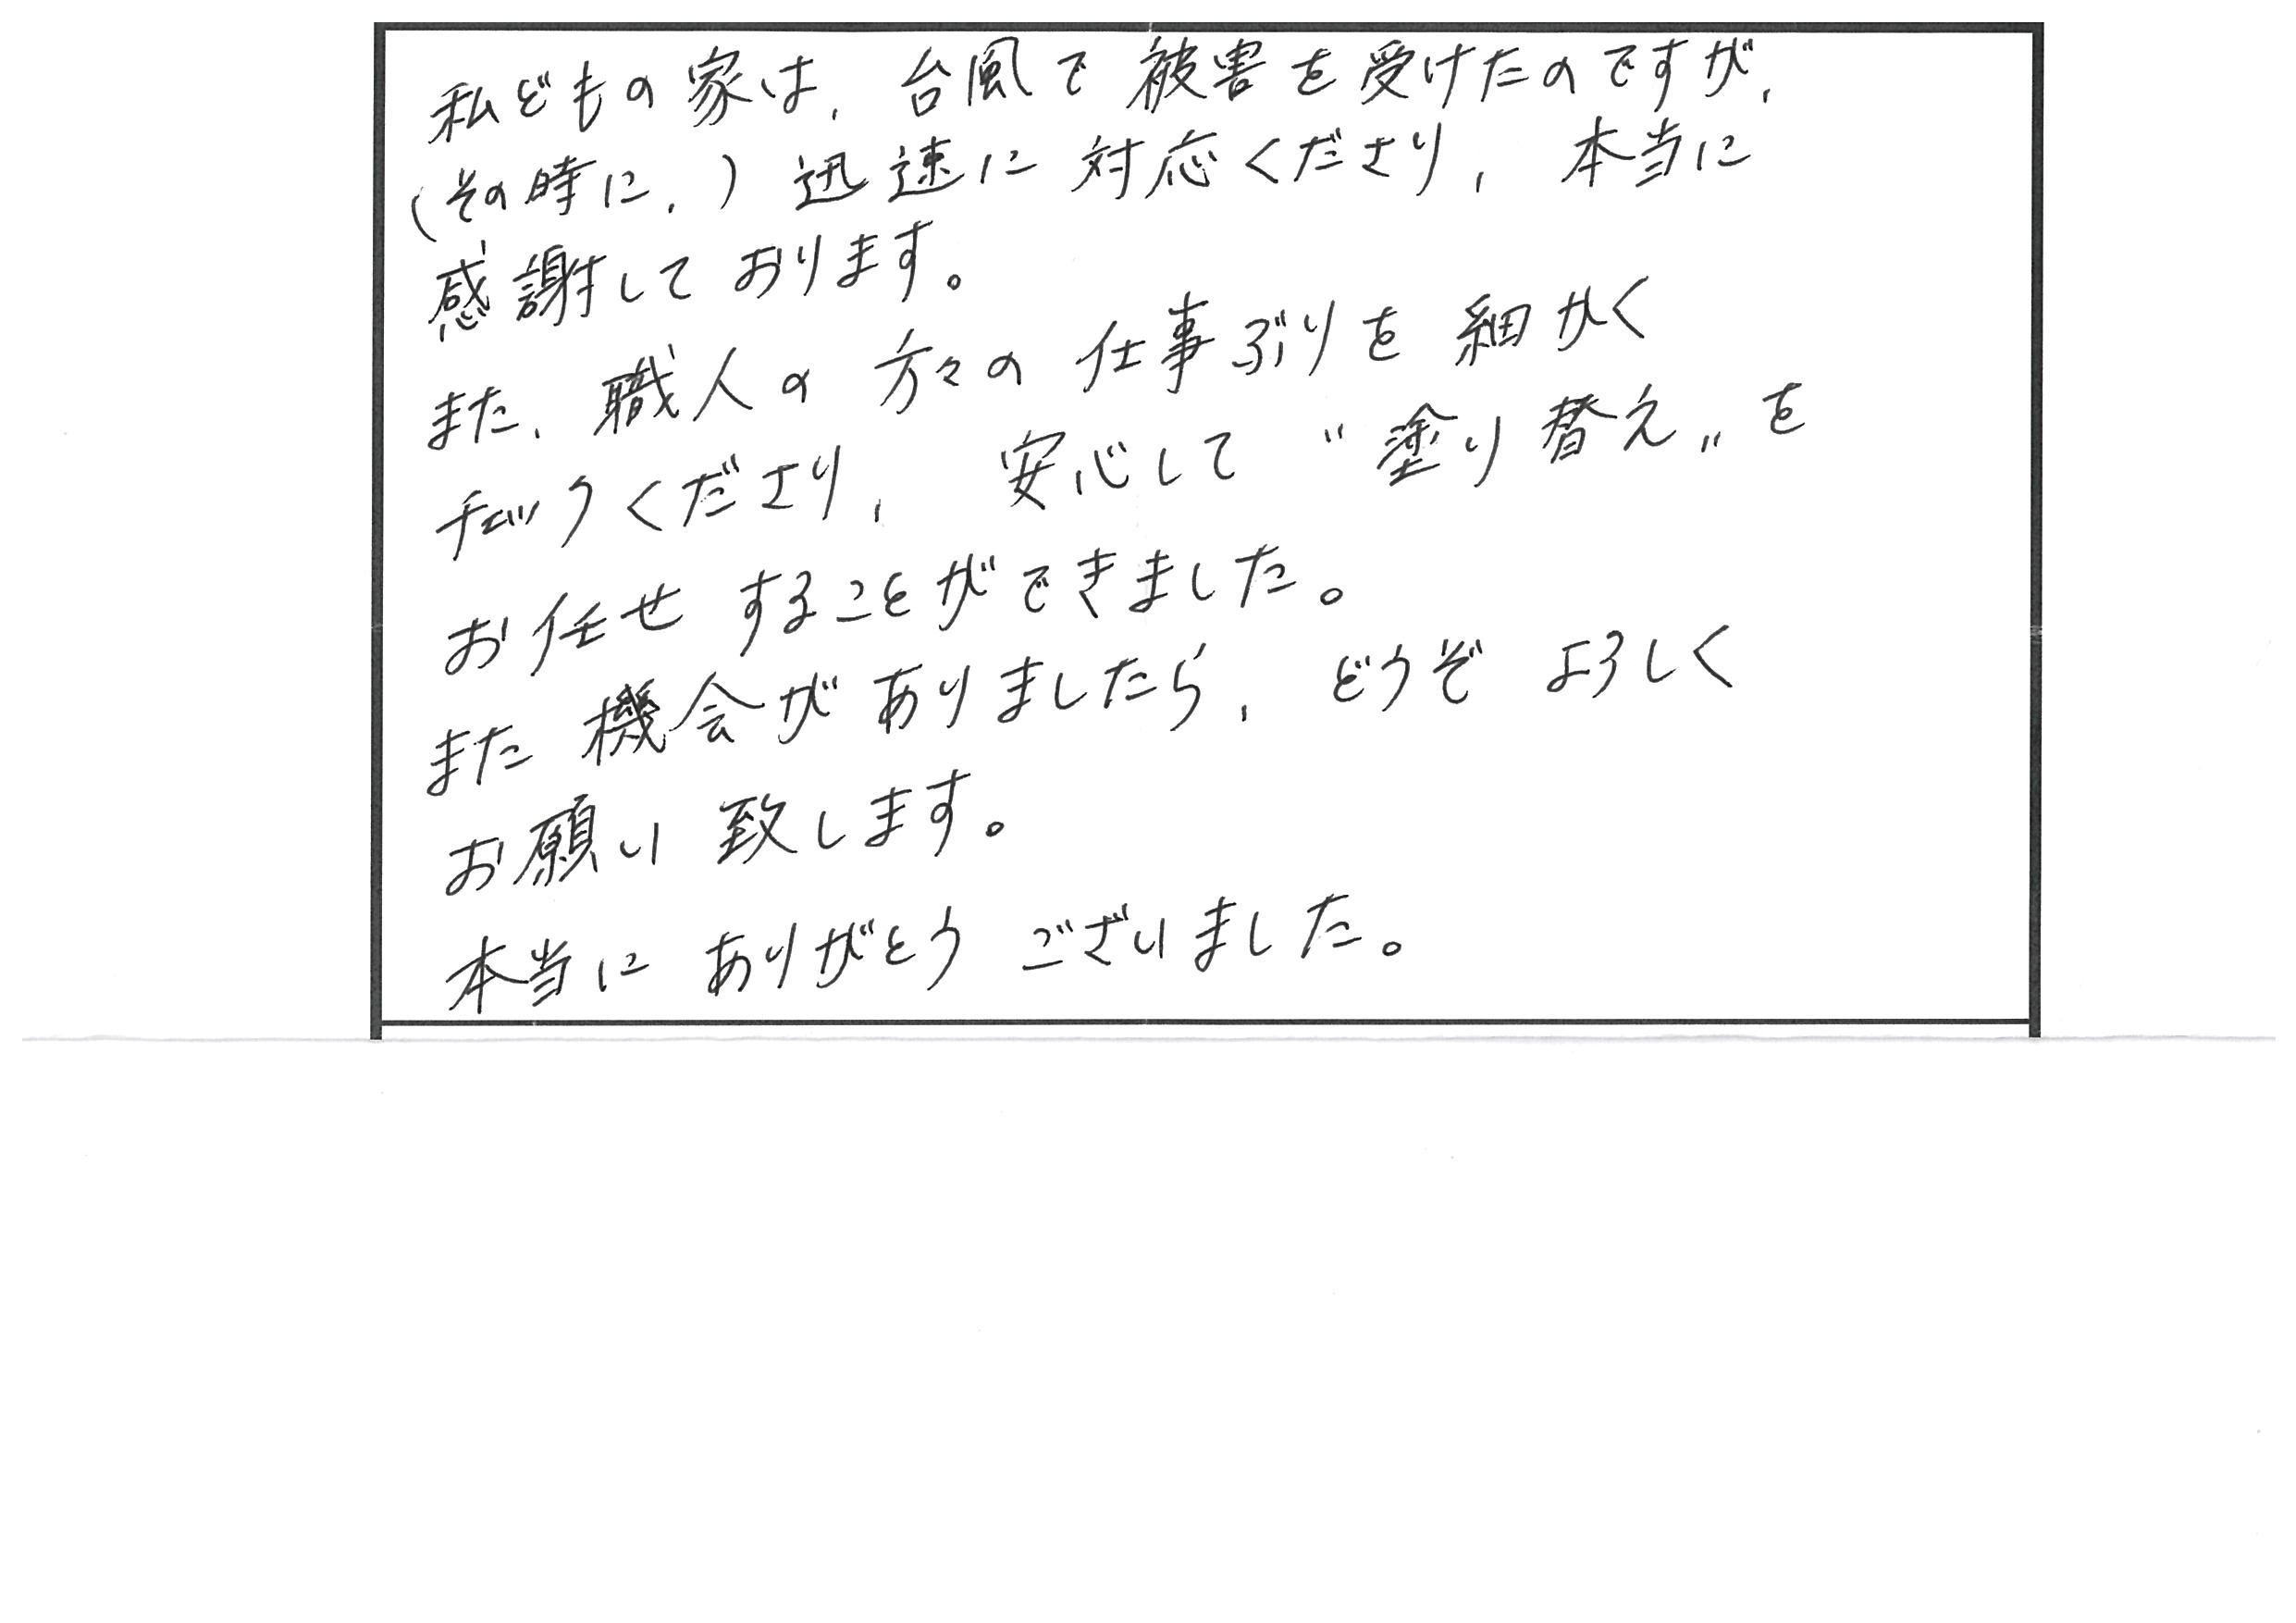 私どもの家は、台風で被害を受けたのですが、
(その時に、)迅速に対応くださり、本当に
感謝しております。
また、職人の方々の仕事ぶりを細かく
チェックくださり、安心して〝塗り替え〟を
お任せすることができました。
また機会がありましたら、どうぞよろしく
お願い致します。
本当にありがとうございました。